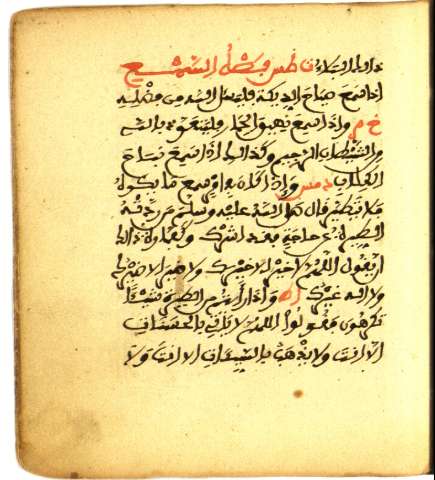 ذلك البلاء طس
اذا سمع صياح الديكة فليسئل الله من فضله
خ م واذا سمع نهيق الحمار فليتعوذ بالله
من الشيطان الرجيم وكذلك اذا سمع نباح
الكلاب د مس واذا سمع ما يكره
فلا يتطير قال صلى الله عليه وسلم من ردته
الطيرة عن حاجة فقد اشرك وكفارة ذلك
ان يقول اللهم لا خير الا خيرك ولا طير الا طيرك
ولا اله غيرك اط واذا رأيتم من الطيرة شيئا
تكرهون فقولوا اللهم لا يأتي بالحسنات
الا انت ولا يذهب بالسيئات الا انت ولا